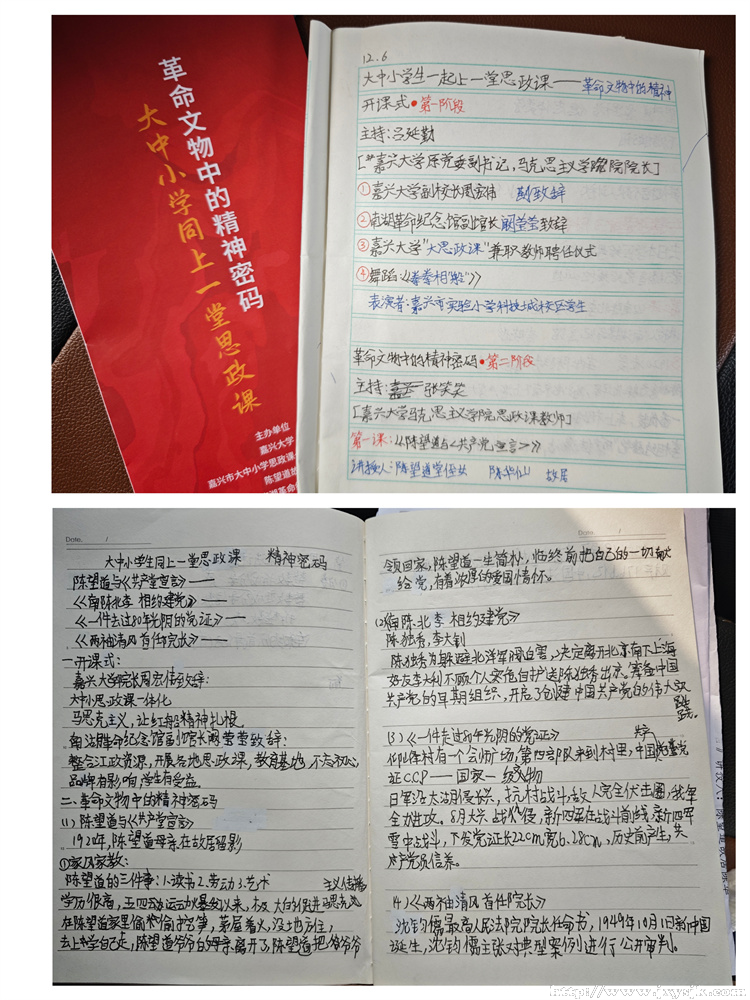 革命文物中的精神密码
大中小学同上一堂思政课
主办单位
嘉兴大学
嘉兴市大中小学思政课
陈望道故
湖革命
12.6
大中小学生一起上一堂思政课——革命文物中的精神
开课式•第一阶段
主持:吕延勤
[嘉兴大学原党委副书记,马克思主义学院院长]
①嘉兴大学副校长周宏伟 致辞
②南湖革命纪念馆副馆长阚莹莹致辞
③嘉兴大学"大思政课"兼职教师聘任仪式
④舞蹈《拳拳相"船"》
表演者:嘉兴市实验小学科技城校区学生
革命文物中的精神密码•第二阶段
主持:张笑笑
[嘉兴大学马克思主义学院思政课教师]
第一课:《陈望道与<共产党宣言>》
讲授人:陈望道堂侄 陈华仙 故居
Date. /
大中小学生同上一堂思政课 精神密码
陈望道与《共产党宣言》——
《南陈北李 相约建党》——
《一件走过80年光阴的党证》——
《两袖清风 首任院长》——
一开课式:
嘉兴大学院长周宏伟致辞:
大中小思政课一体化
马思克主义,让红船精神扎根
南湖革命纪念馆副馆长阚莹莹致辞:
整合江政资源,开展各地思政课,教育基地,不忘初心,
品牌有影响,学生有受益。
二、革命文物中的精神密码
(1)陈望道与《共产堂宣言》
1920年,陈望道母亲在故居留影
①家风家教:
陈望道的三件事:1.读书2.劳动3.艺术
学历很高,五四运动爆发以来,极大的促进马思克主义传播
在陈望道家里偷挖笋,茅屋着火,没地方住,
去上学自己走,陈望道爷爷的母亲离开了陈望道把爷爷
Date. /
领回家,陈望道一生简朴,临终前把自己的一切献
给党,有着浓厚的爱国情怀。
(2)《南陈北李 相约建党》
陈独秀,李大钊
陈独秀为躲避北洋军阀迫害,决定离开北京南下上海
好友李大钊不顾个人安危自护送陈独秀出京。筹备中国
共产党的早期组织,开启了创建中国共产党的伟大实践。
(3)《一件走过80年光阴的党证》
仰峰村有一个会师广场,第四部队来到村里,中国共产党党
证CCP——国家一级文物
日军没太湖侵长兴,杭村战斗,敌人完全伏击圈,我军
全力进攻。8月大六战役,新四军在战斗前线,新四军
雪中战斗,下发党证长22cm宽6.28cm,历史前产生,共
产党员信养。
(4)《两袖清风 首任院长》
沈钧儒最高人民法院院长任命书,1949年10月1日新中国
诞生,沈钧儒主张对典型案例进行公开审判。
http://www.jxysjk.com